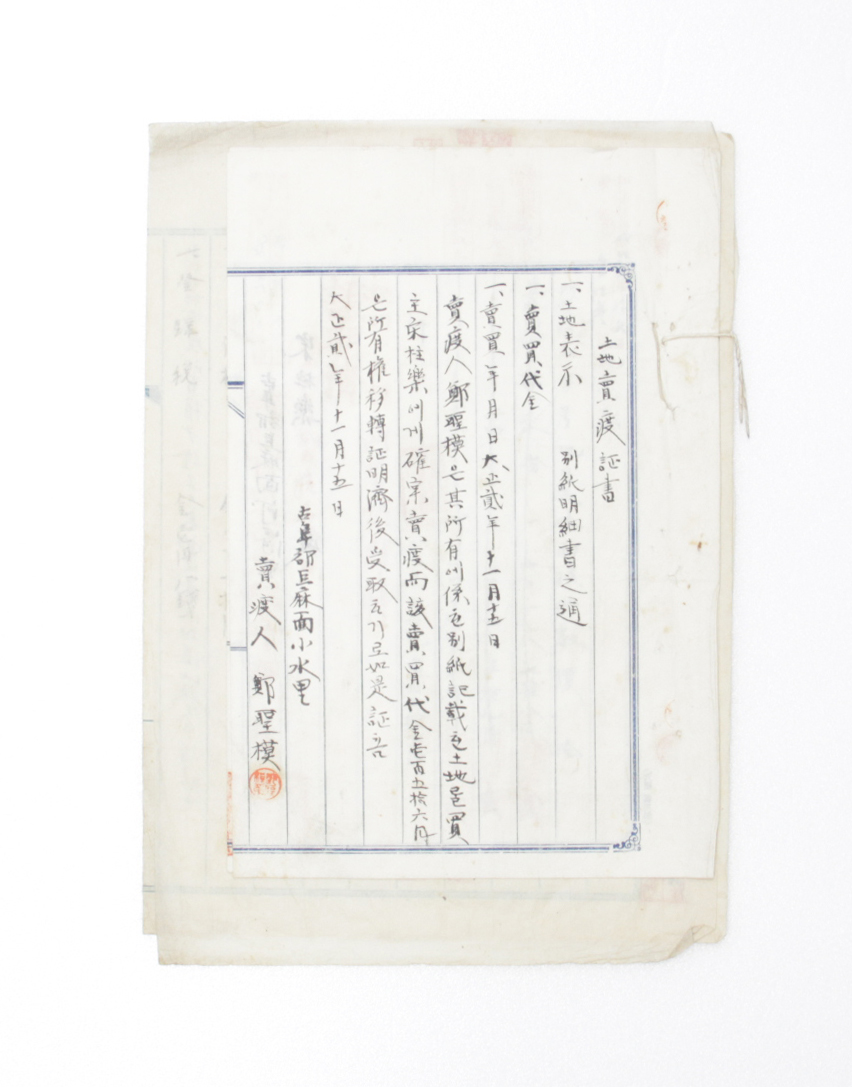 土地賣渡証書
一、土地表示　別紙明細書之通
一、賣買代金
一、賣買年月日大正貳年十一月十五日
賣渡人鄭聖模은其所有에係한別紙記載한土地를買
主宋柱樂에게確宗賣渡而該賣買代金壱百五拾六円
은所有權移轉証明濟後受取하기로如是証홈
大正貳年十一月十五日
古阜郡巨麻面小水里
賣渡人　鄭聖模